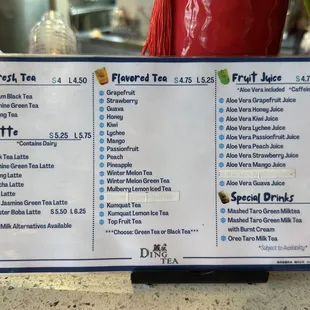 resh Tea
S 4 L 4.50
am Black Tea
mine Green Tea
ng Tea
tte
S 5.25 L 5.75
*Contains Dairy
k Tea Latte
mine Green Tea Latte
ng Tea Latte
cha Latte
Latte
Jasmine Green Tea Latte
ster Boba Latte S 5.50 L 6.25
Milk Alternatives Available
Flavored Tea S 4.75 L 5.25
Grapefruit
Strawberry
Guava
Honey
Kiwi
Lychee
Mango
Passionfruit
Peach
Pineapple
Winter Melon Tea
Winter Melon Green Tea
Mulberry Lemon Iced Tea
Kumquat Tea
Kumquat Lemon Ice Tea
Top Fruit Tea
***Choose: Green Tea or Black Tea***
DING
TEA
Fruit Juice S 4.7
*Aloe Vera included *Caffeine
Aloe Vera Grapefruit Juice
Aloe Vera Honey Juice
Aloe Vera Kiwi Juice
Aloe Vera Lychee Juice
Aloe Vera Passionfruit Juice
Aloe Vera Peach Juice
Aloe Vera Strawberry Juice
Aloe Vera Mango Juice
Aloe Vera Guava Juice
Special Drinks
Mashed Taro Green Milktea
Mashed Taro Green Milk Tea
with Burnt Cream
Oreo Taro Milk Tea
*Subject to Availability